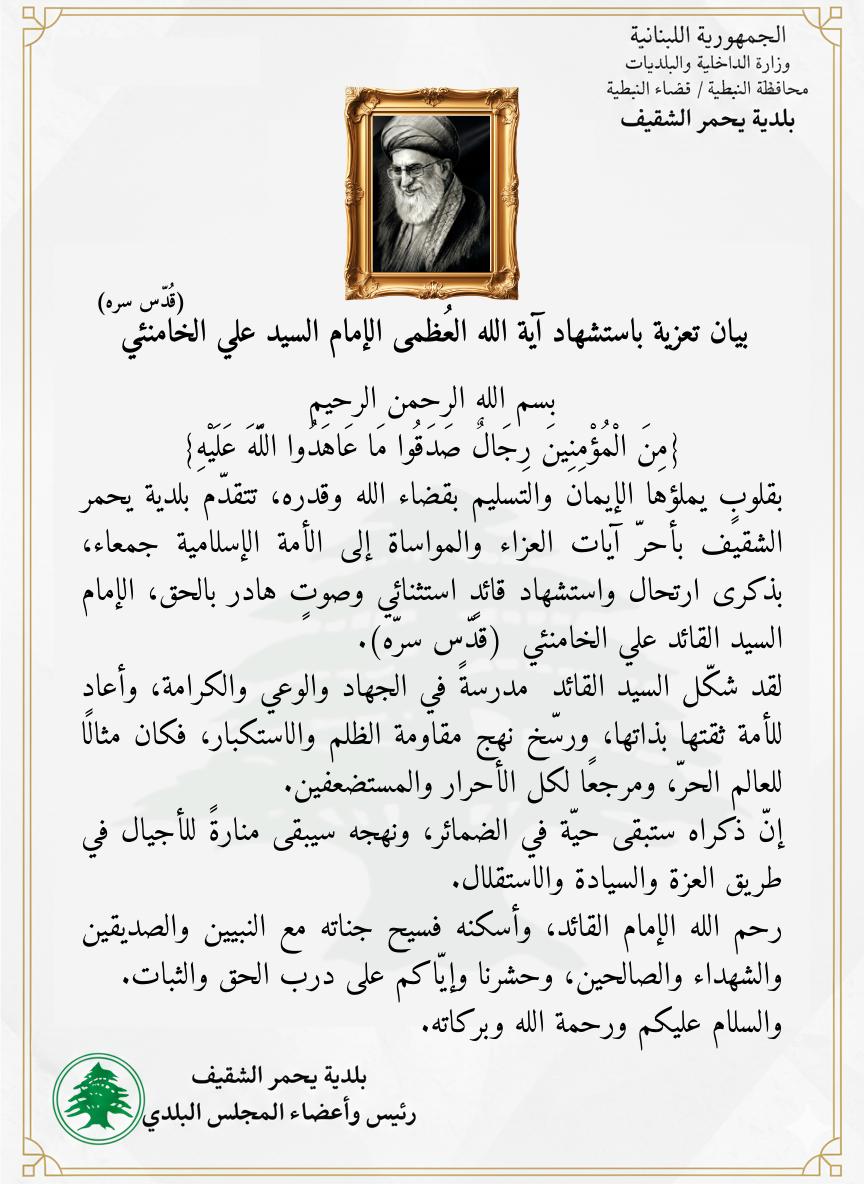 الجمهورية اللبنانية
وزارة الداخلية والبلديات
محافظة النبطية / قضاء النبطية
بلدية يحمر الشقيف
(قُدّس سره)
بيان تعزية باستشهاد آية الله العُظمى الإمام السيد علي الخامنئي
بسم الله الرحمن الرحيم
{مِنَ الْمُؤْمِنِينَ رِجَالٌ صَدَقُوا مَا عَاهَدُوا اللَّهَ عَلَيْهِ}
بقلوبٍ يملؤها الإيمان والتسليم بقضاء الله وقدره، تتقدّم بلدية يحمر
الشقيف بأحرّ آيات العزاء والمواساة إلى الأمة الإسلامية جمعاء،
بذكرى ارتحال واستشهاد قائدٍ استثنائي وصوتٍ هادر بالحق، الإمام
السيد القائد علي الخامنئي (قدّس سرّه).
لقد شكّل السيد القائد مدرسةً في الجهاد والوعي والكرامة، وأعاد
للأمة ثقتها بذاتها، ورسّخ نهج مقاومة الظلم والاستكبار، فكان مثالًا
للعالم الحرّ، ومرجعًا لكل الأحرار والمستضعفين.
إنّ ذكراه ستبقى حيّة في الضمائر، ونهجه سيبقى منارةً للأجيال في
طريق العزة والسيادة والاستقلال.
رحم الله الإمام القائد، وأسكنه فسيح جناته مع النبيين والصديقين
والشهداء والصالحين، وحشرنا وإيّاكم على درب الحق والثبات.
والسلام عليكم ورحمة الله وبركاته.
بلدية يحمر الشقيف
رئيس وأعضاء المجلس البلدي